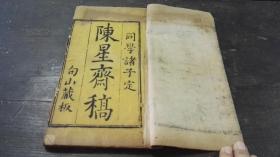 同學諸子定
陳星齋稿
向山藏板